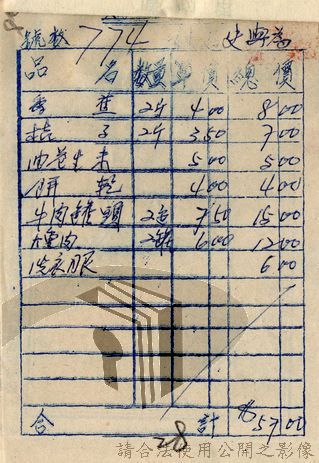 號数 774 史與為
品名 数量 單價 總價
香蕉 2斤 4 00 8 00
桔子 2斤 3 50 7 00
油花生米 5 00 5 00
餅乾 4 00 4 00
牛肉罐頭 2 7 50 15 00
肉 2罐 6 00 12 00
洗衣服 6 00
合計 57 00
28
請合法使用公開之影像